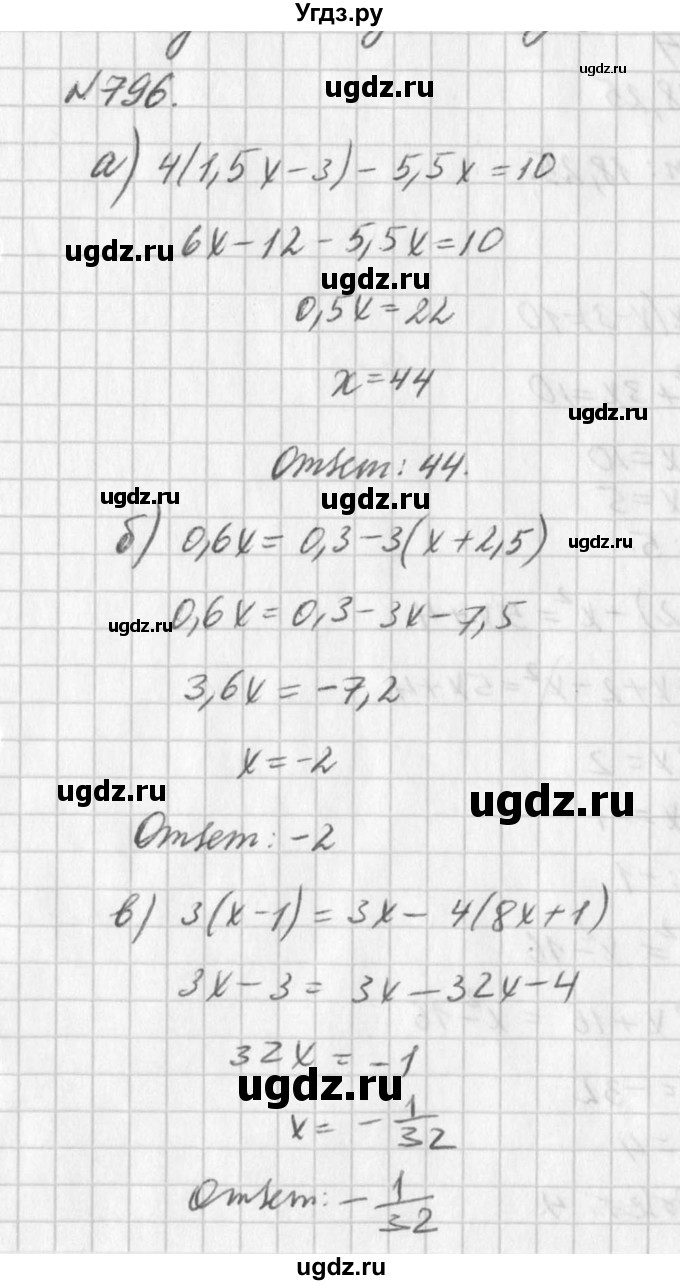 Угдз.ру
ugdz.ru
№796. ugdz.ru
а) 4(1,5x-3) - 5,5x = 10
ugdz.ru 6x - 12 - 5,5x = 10
ugdz.ru
0,5x = 22
x = 44
ugdz.ru
Ответ: 44.
ugdz.ru ugdz.ru
б) 0,6x = 0,3 - 3(x + 2,5) ugdz.ru
ugdz.ru 0,6x = 0,3 - 3x - 7,5
3,6x = -7,2
x = -2
ugdz.ru ugdz.ru
Ответ: -2
в) 3(x-1) = 3x - 4(8x+1)
3x - 3 = 3x - 32x - 4
32x = -1
ugdz.ru
x = - 1/32
Ответ: - 1/32
ugdz.ru